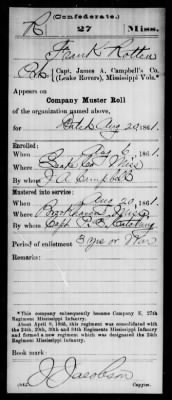 (Confederate.)
R 27 Miss.
Frank Rotten
Capt. James A. Campbell's Co.
(Leake Rovers), Mississippi Vols.*
Appears on
Company Muster Roll
of the organization named above,
for Aug 20, 1861.
Enrolled:
When Aug 6, 1861.
Where Leake Co Miss
By whom J A Campbell
Mustered into service:
When Aug 20, 1861.
Where Miss
By whom Capt
Period of enlistment 3 yrs or War
Remarks:
*This company subsequently became Company E, 27th
Regiment Mississippi Infantry.
About April 9, 1865, this regiment was consolidated with
the 24th, 29th, 30th and 34th Regiments Mississippi Infantry
and formed a new regiment which was designated the 24th
Regiment Mississippi Infantry.
Book mark:
J. Jacobson
Copyist.